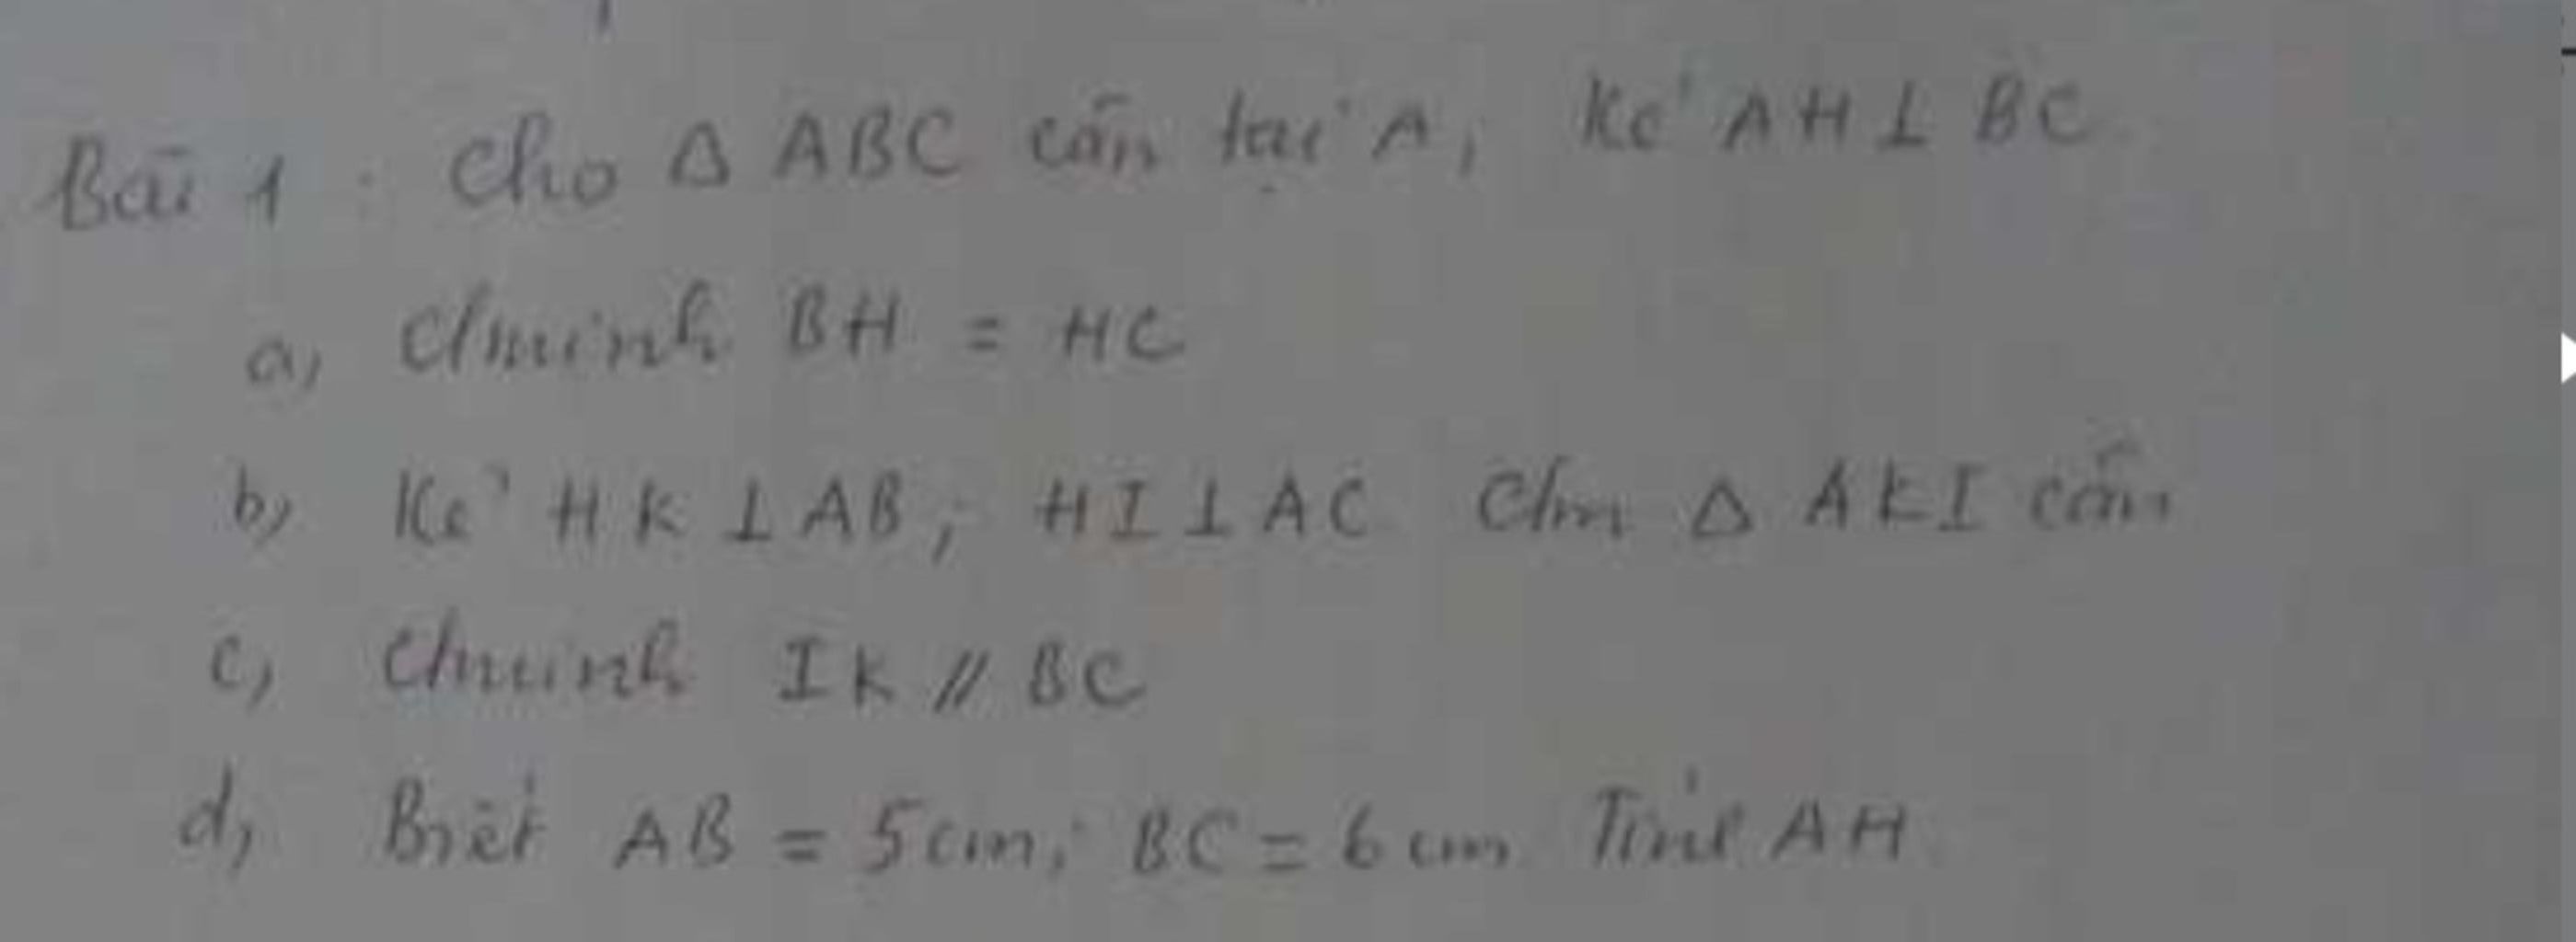 Bài 1 : Cho Δ ABC cân tại A, Kẻ AH ⊥ BC
a, C/minh BH = HC
b, Kẻ HK ⊥ AB, HI ⊥ AC C/m Δ AKI cân
c, C/minh IK // BC
d, Biết AB = 5cm; BC = 6 cm Tính AH